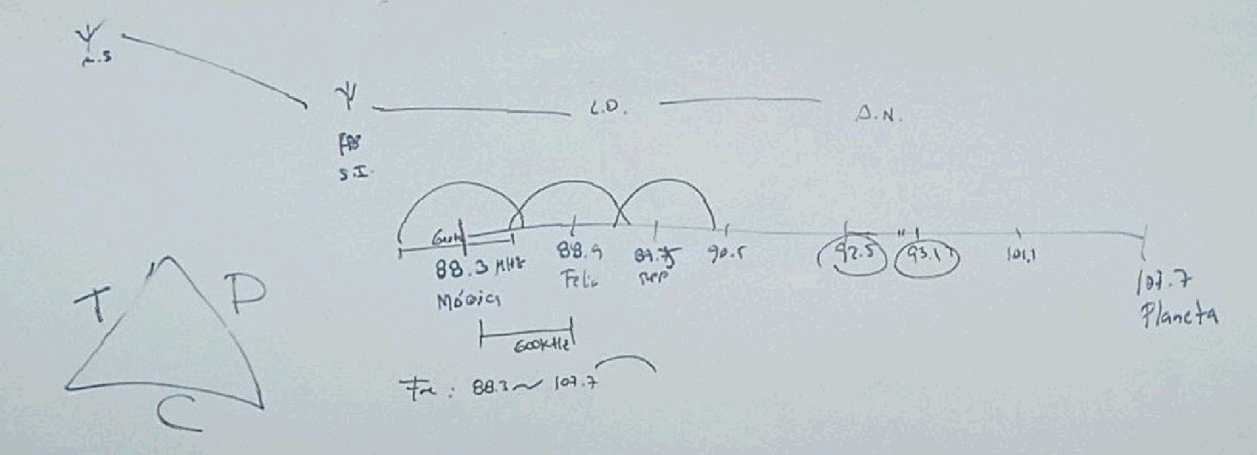 Ψ
Ψ
L.D.
D.N.
S.I.
88.3 MHz
88.9
90.5
92.5
93.1
101.1
107.7
Mágica
Feliz
RPP
Planeta
600KHz
Fre : 88.3 ~ 107.7
T
P
C